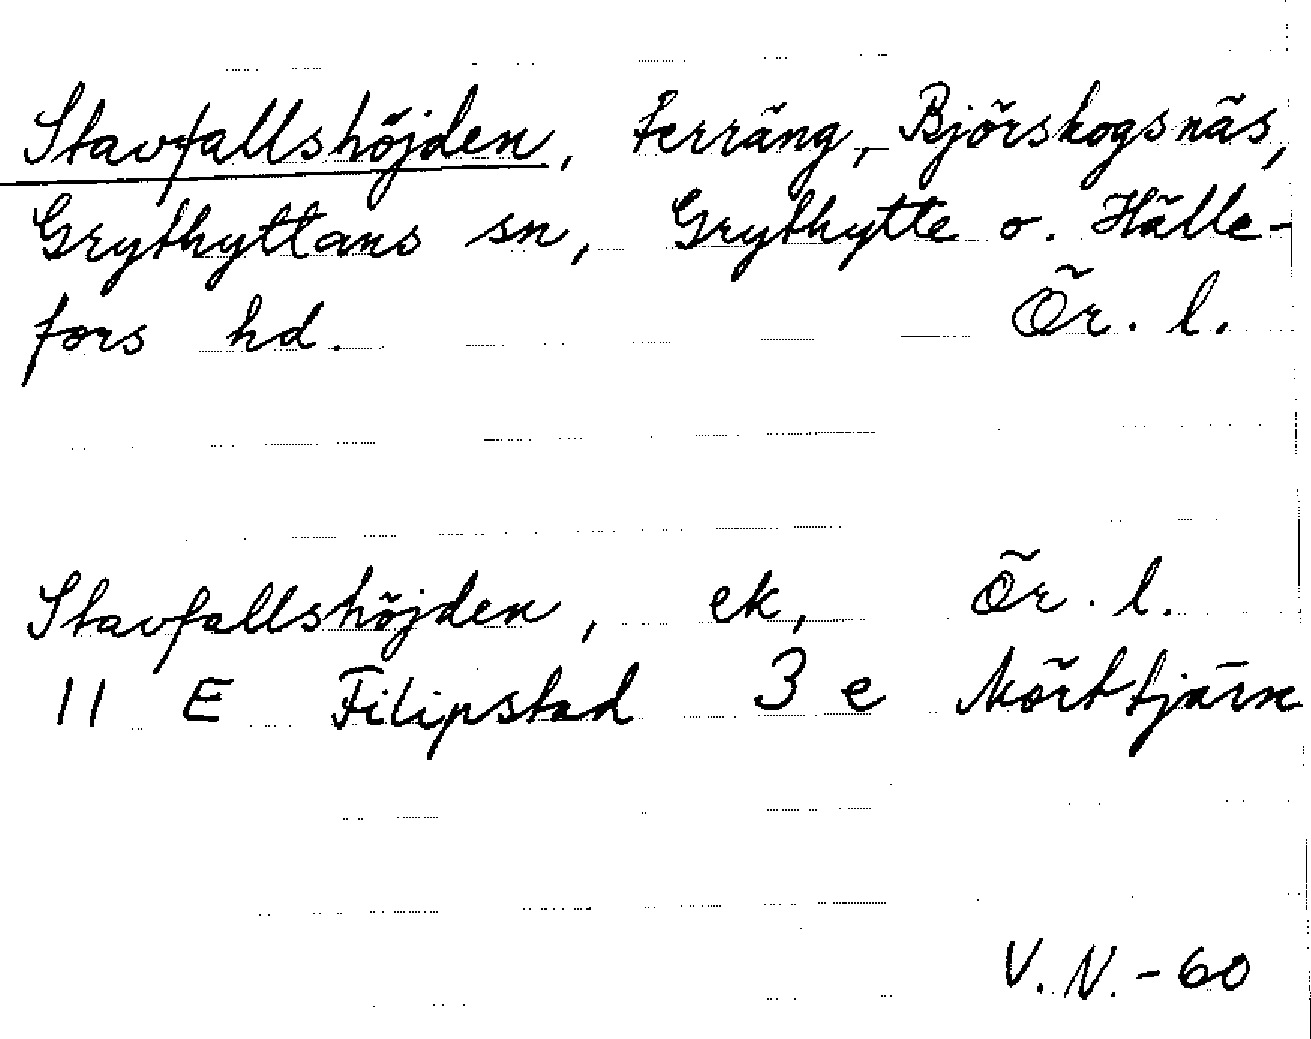 Stavfallshöjden, terräng, Björskogsnäs,
Grythyttans sn, Grythytte o. Hälle-
fors hd. Ör. l.
Stavfallshöjden, ek, Ör. l.
11 E Filipstad 3 e Mörttjärn
V.N.-60